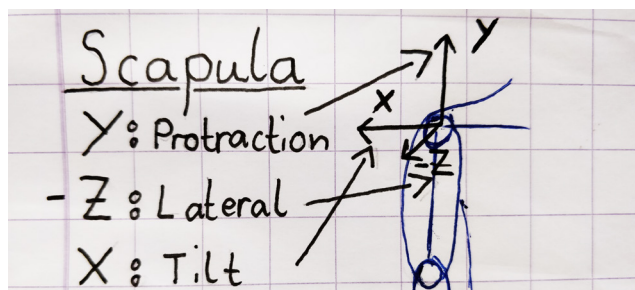 Scapula
Y: Protraction
- Z: Lateral
X: Tilt
Y
X
-Z